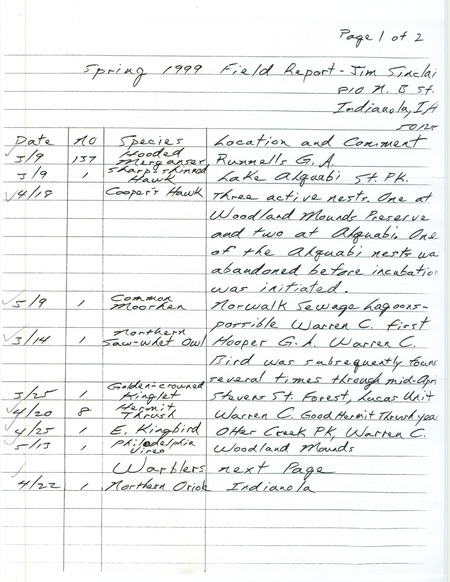 Page 1 of 2
Spring 1999 Field Report - Jim Sinclai
810 N. B St.
Indianola, IA
50125
Date NO Species Location and Comment
3/9 137 Hooded Merganser Runnells G. A.
3/9 1 Sharp-shinned Hawk Lake Ahquabi St. PK.
4/18 Cooper's Hawk Three active nests. One at
Woodland Mounds Preserve
and two at Ahquabi. One
of the Ahquabi nests wa
abandoned before incubation
was initiated.
5/9 1 Common Moorhen Norwalk Sewage Lagoons-
possible Warren C. first
3/14 1 Northern Saw-whet Owl Hooper G. A. Warren C.
Bird was subsequently foun
several times through mid-Apri
3/25 1 Golden-crowned Kinglet Stevens St. Forest, Lucas Unit
4/20 8 Hermit Thrush Warren C. Good Hermit Thrush yea
4/25 1 E. Kingbird Otter Creek PK, Warren C.
5/13 1 Philadelphia Vireo Woodland Mounds
Warblers next Page
4/22 1 Northern Oriole Indianola